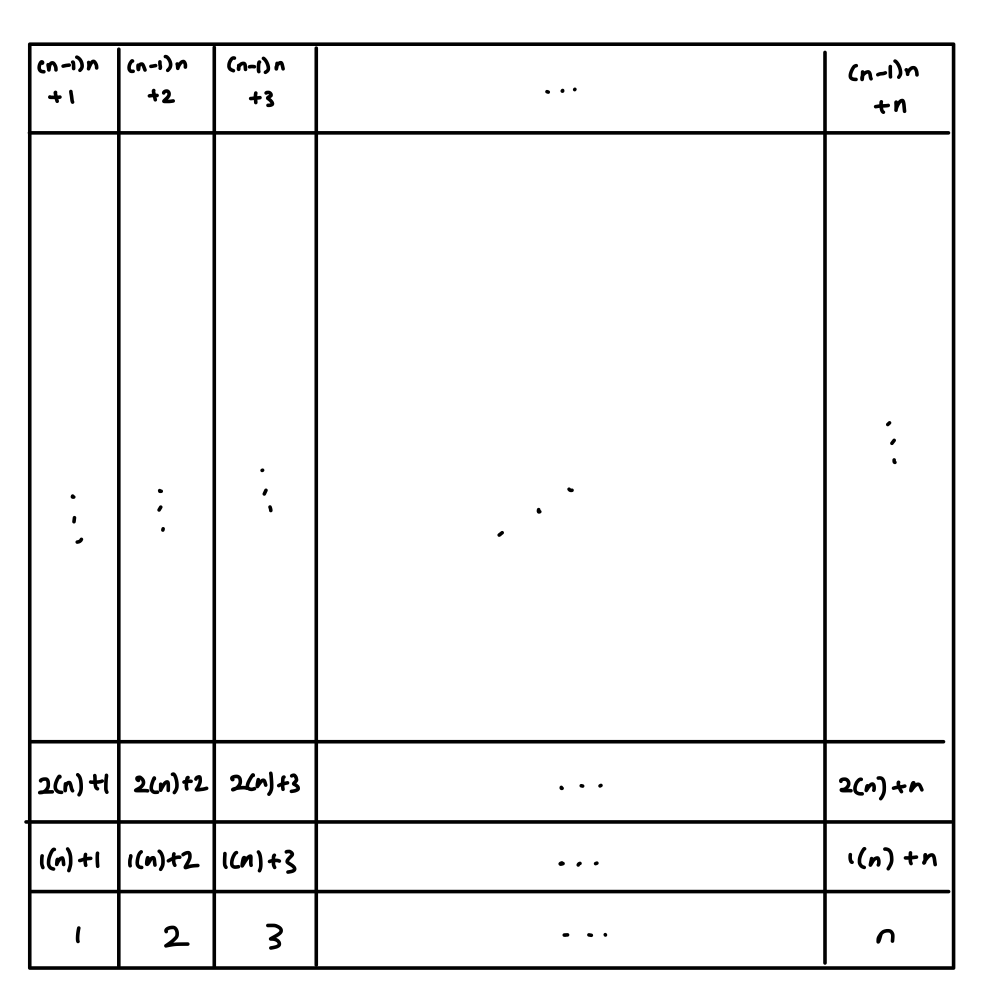 (n-1)n (n-1)n (n-1)n (n-1)n
+1 +2 +3 ... +n
2(n)+1 2(n)+2 2(n)+3 ... 2(n)+n
1(n)+1 1(n)+2 1(n)+3 ... 1(n)+n
1 2 3 ... n